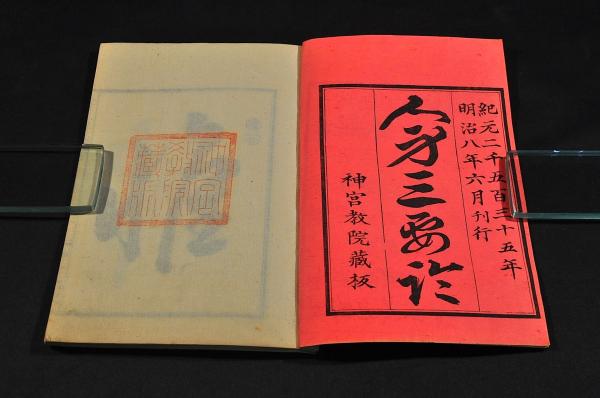 紀元二千五百三十五年
明治八年六月刊行
人身三要論
神宮教院藏板
神宮
教院
藏